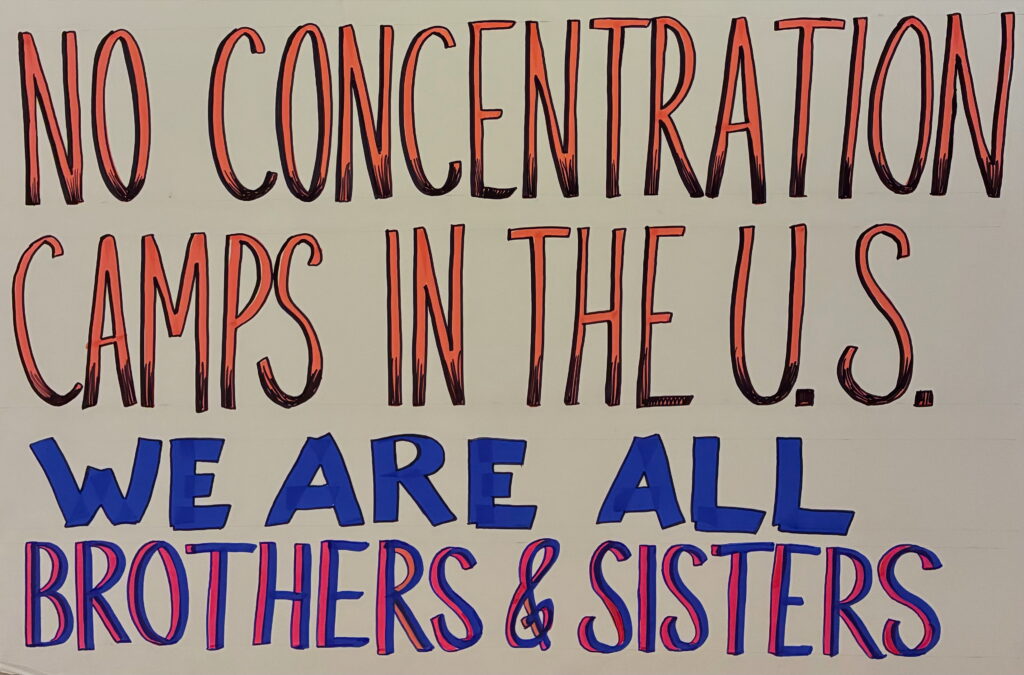 NO CONCENTRATION
CAMPS IN THE U.S.
WE ARE ALL
BROTHERS & SISTERS